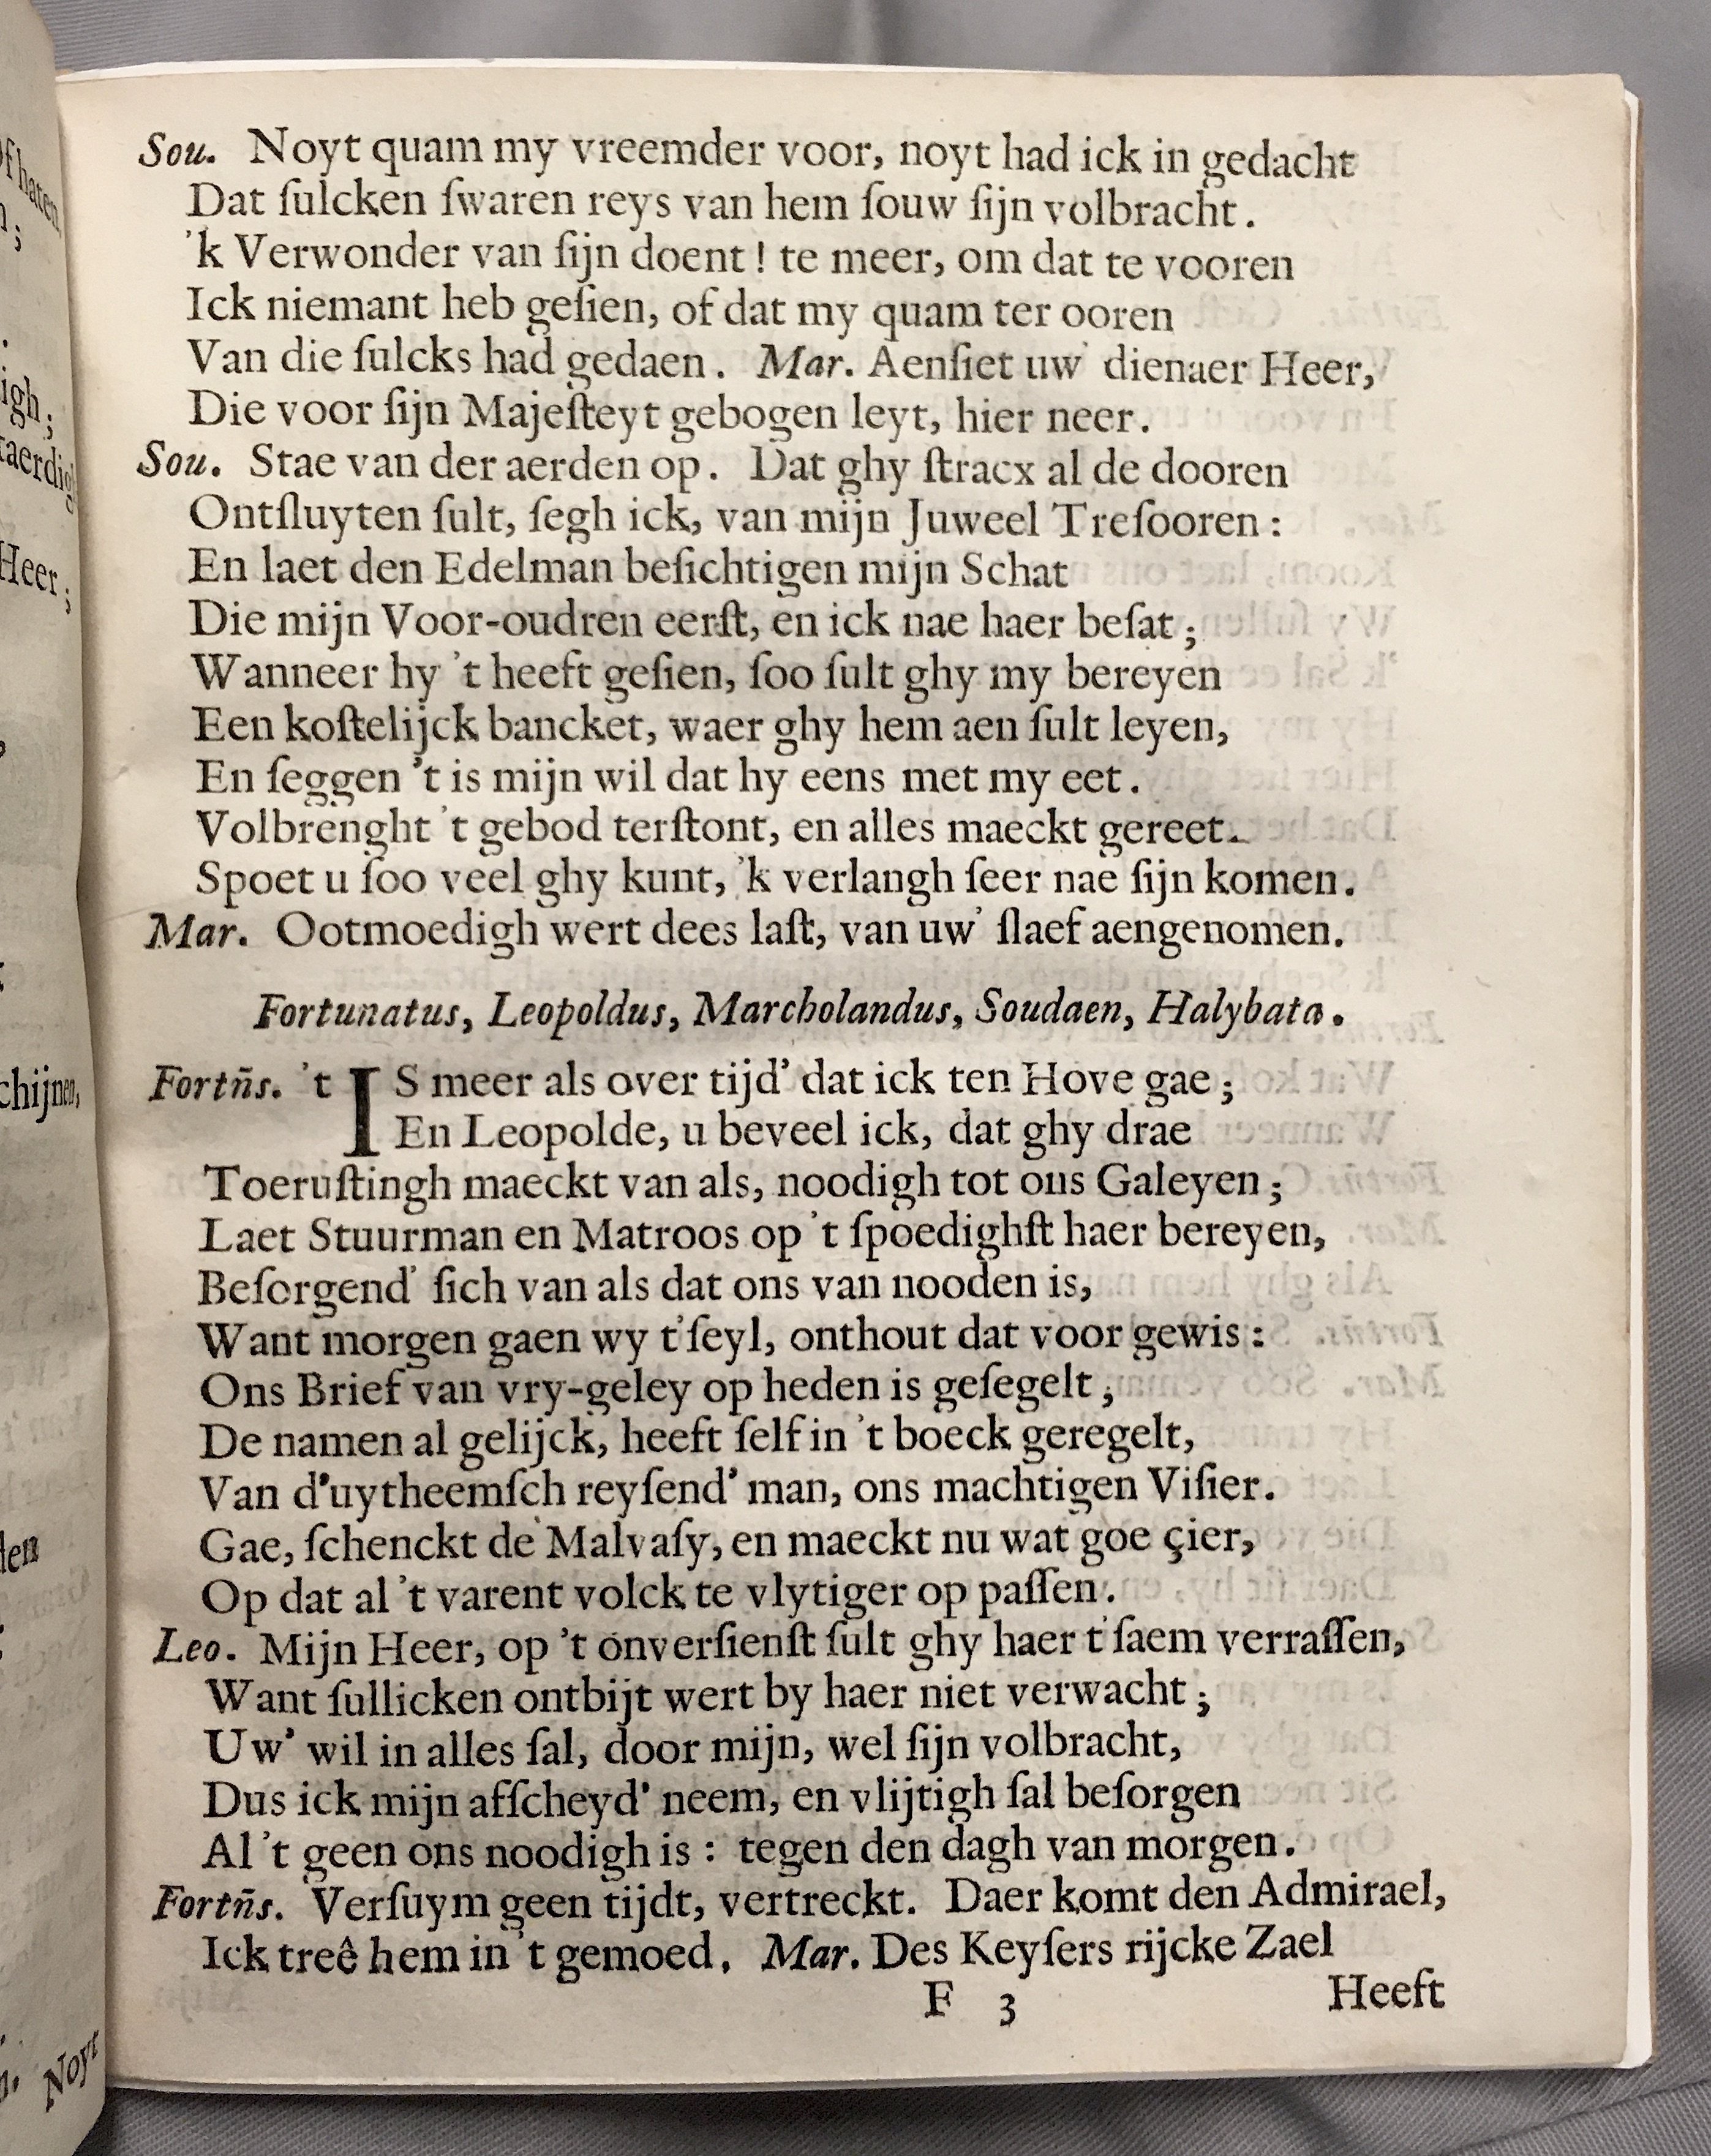 Sou. Noyt quam my vreemder voor, noyt had ick in gedacht
Dat ſulcken ſwaren reys van hem ſouw ſijn volbracht.
'k Verwonder van ſijn doent! te meer, om dat te vooren
Ick niemant heb geſien, of dat my quam ter ooren
Van die ſulcks had gedaen. Mar. Aenſiet uw' dienaer Heer,
Die voor ſijn Majeſteyt gebogen leyt, hier neer.
Sou. Stae van der aerden op. Dat ghy ſtracx al de dooren
Ontſluyten ſult, ſegh ick, van mijn Juweel Treſooren:
En laet den Edelman beſichtigen mijn Schat
Die mijn Voor-oudren eerſt, en ick nae haer beſat;
Wanneer hy 't heeft geſien, ſoo ſult ghy my bereyen
Een koſtelijck bancket, waer ghy hem aen ſult leyen,
En ſeggen 't is mijn wil dat hy eens met my eet.
Volbrenght 't gebod terſtont, en alles maeckt gereet.
Spoet u ſoo veel ghy kunt, 'k verlangh ſeer nae ſijn komen.
Mar. Ootmoedigh wert dees laſt, van uw' ſlaef aengenomen.
Fortunatus, Leopoldus, Marcholandus, Soudaen, Halybata.
Fortñs. 't IS meer als over tijd' dat ick ten Hove gae;
En Leopolde, u beveel ick, dat ghy drae
Toeruſtingh maeckt van als, noodigh tot ons Galeyen;
Laet Stuurman en Matroos op 't ſpoedighſt haer bereyen,
Beſorgend' ſich van als dat ons van nooden is,
Want morgen gaen wy t'ſeyl, onthout dat voor gewis:
Ons Brief van vry-geley op heden is geſegelt,
De namen al gelijck, heeft ſelf in 't boeck geregelt,
Van d'uytheemſch reyſend' man, ons machtigen Viſier.
Gae, ſchenckt de Malvaſy, en maeckt nu wat goe çier,
Op dat al 't varent volck te vlytiger op paſſen.
Leo. Mijn Heer, op 't onverſienſt ſult ghy haer t'ſaem verraſſen,
Want ſullicken ontbijt wert by haer niet verwacht;
Uw' wil in alles ſal, door mijn, wel ſijn volbracht,
Dus ick mijn afſcheyd' neem, en vlijtigh ſal beſorgen
Al 't geen ons noodigh is: tegen den dagh van morgen.
Fortñs. Verſuym geen tijdt, vertreckt. Daer komt den Admirael,
Ick treê hem in 't gemoed. Mar. Des Keyſers rijcke Zael
F 3 Heeft